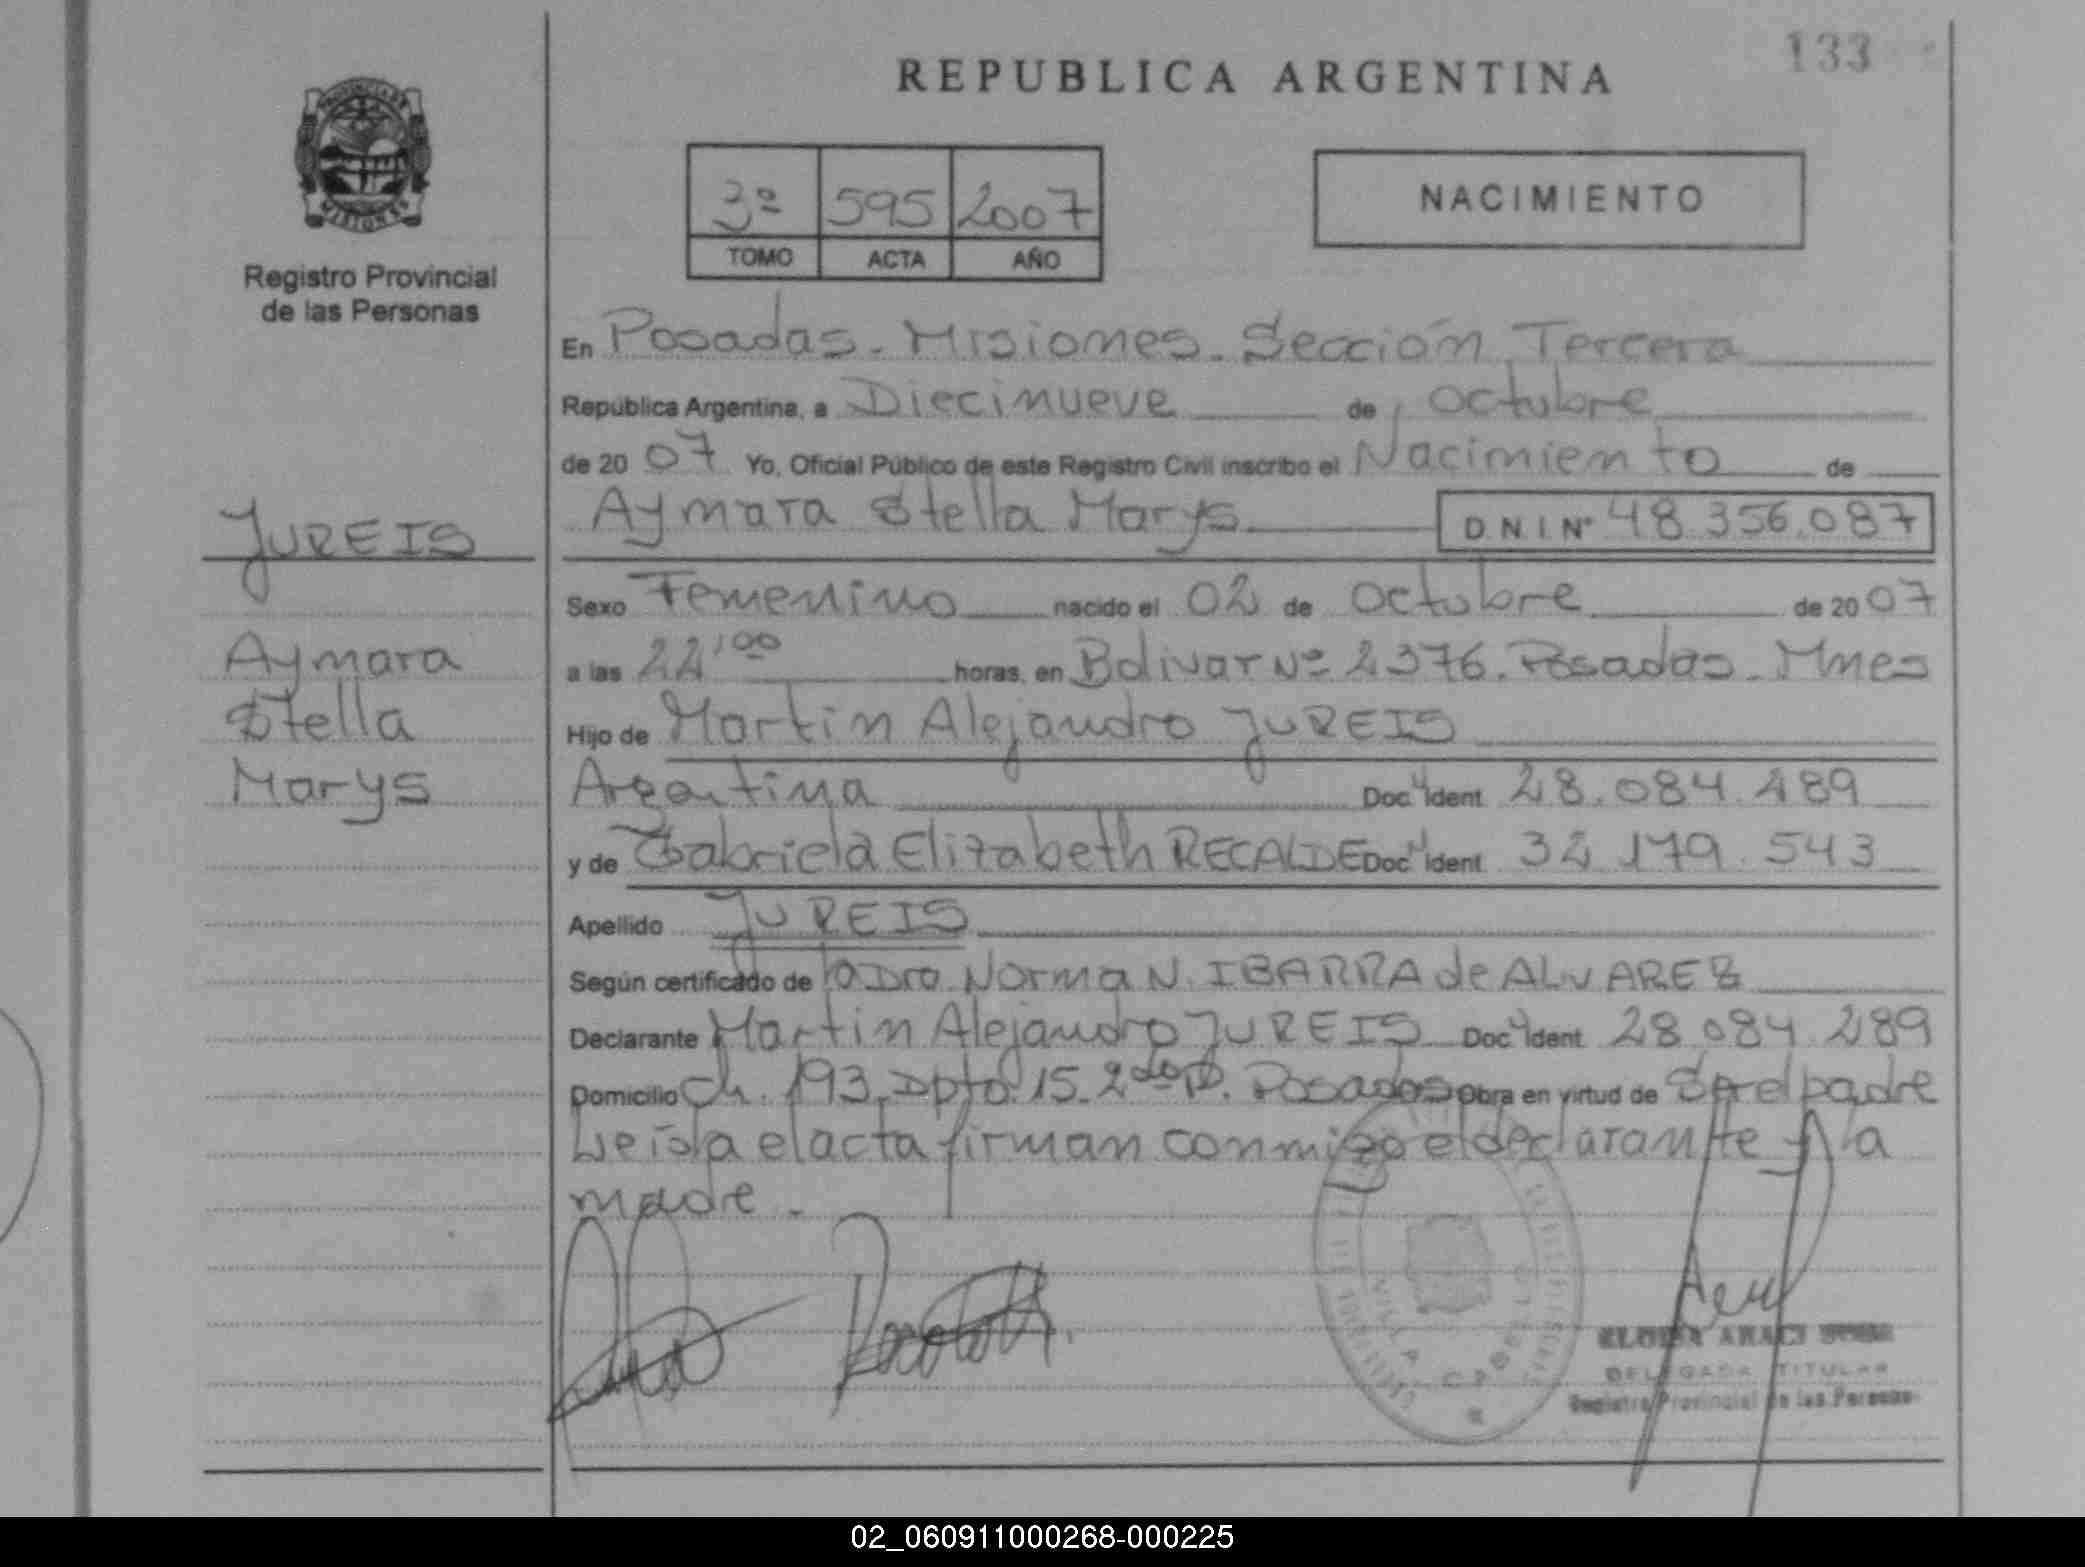 133
REPUBLICA ARGENTINA
3º 595 2007
TOMO ACTA AÑO
NACIMIENTO
Registro Provincial
de las Personas
En Posadas - Misiones - Sección Tercera
República Argentina, a Diecinueve de Octubre
de 2007 Yo, Oficial Público de este Registro Civil inscribo el Nacimiento de
Aymara Stella Marys D.N.I. Nº 48.356.087
JUREIS
Aymara
Stella
Marys
Sexo Femenino nacido el 02 de Octubre de 2007
a las 22,00 horas, en Bolivar Nº 2376. Posadas - Mnes
Hijo de Martin Alejandro JUREIS
Argentina Doc. Ident. 28.084.289
y de Gabriela Elizabeth RECALDE Doc. Ident. 32.179.543
Apellido JUREIS
Según certificado de la Dra. Norma N. IBARRA de ALVAREZ
Declarante Martin Alejandro JUREIS Doc. Ident. 28.084.289
Domicilio Ch. 193. Dpto. 15. 2do P. Posadas Obra en virtud de Ser el padre
Leida el acta firman conmigo el declarante y la
madre.-
VILLA CABELLO
ARACI
DELEGADA TITULAR
Registro Provincial de las Personas
02_060911000268-000225